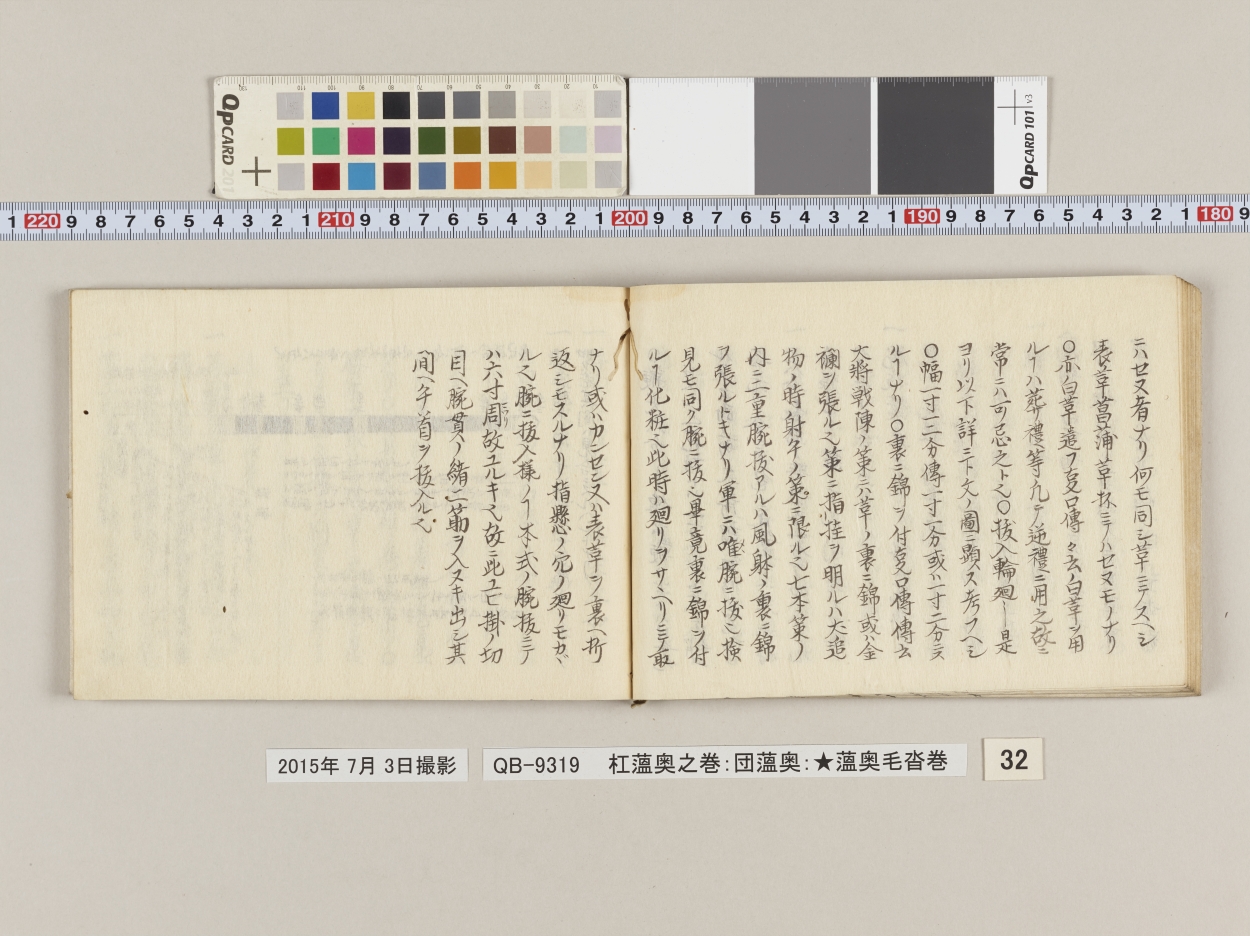 ニハセヌ者ナリ何モ同シ草ニテスヘシ
表草菖蒲草杯ニテハセヌモノナリ
〇亦白草遣フ㕝口傳々云ノ白草ヲ用
ルヿハ葬禮等凡テ逆禮ニ用之故ニ
常ニハ可忌之ト也〇抜入輪廻シ是
ヨリ以下詳ニ下文ノ圖ニ顕ス考フヘシ
〇幅一寸二分傳一寸一分或ハ一寸二分ニス
ルヿナリ〇裏ニ錦ヲ付㕝口傳傳云
大將戦陳ノ策ニハ草ノ裏ニ錦或ハ金
襴ヲ張ル也策ニ指挂ヲ明ルハ犬追
物ノ時射手ノ策ニ限ル也七本策ノ
内ニ二重腕抜アルハ風躰ノ裏ニ錦
ヲ張ルトキナリ軍ニハ唯腕ニ抜也検
見モ同ク腕ニ抜也畢竟裏ニ錦ヲ付
ルヿ化粧也此時ハ廻リヲサヘリニテ取
ナリ或ハカンセン又ハ表草ヲ裏ヘ折
返シモスルナリ指懸ノ穴ノ廻リモカヾ
ル也腕ニ抜入様ノヿ本式ノ腕抜ニテ
ハ六寸周故ユルキ也故ニ此ユビ掛ノ切
目ヘ腕貫ノ緒二筋ヲ入ヌキ出シ其
間ヘ手首ヲ抜入ル也
QPCARD 201
QPCARD 101 v3
1 220 9 8 7 6 5 4 3 2 1 210 9 8 7 6 5 4 3 2 1 200 9 8 7 6 5 4 3 2 1 190 9 8 7 6 5 4 3 2 1 180 9
2015年 7月 3日撮影
QB-9319 杠薀奥之巻:団薀奥:★薀奥毛沓巻
32